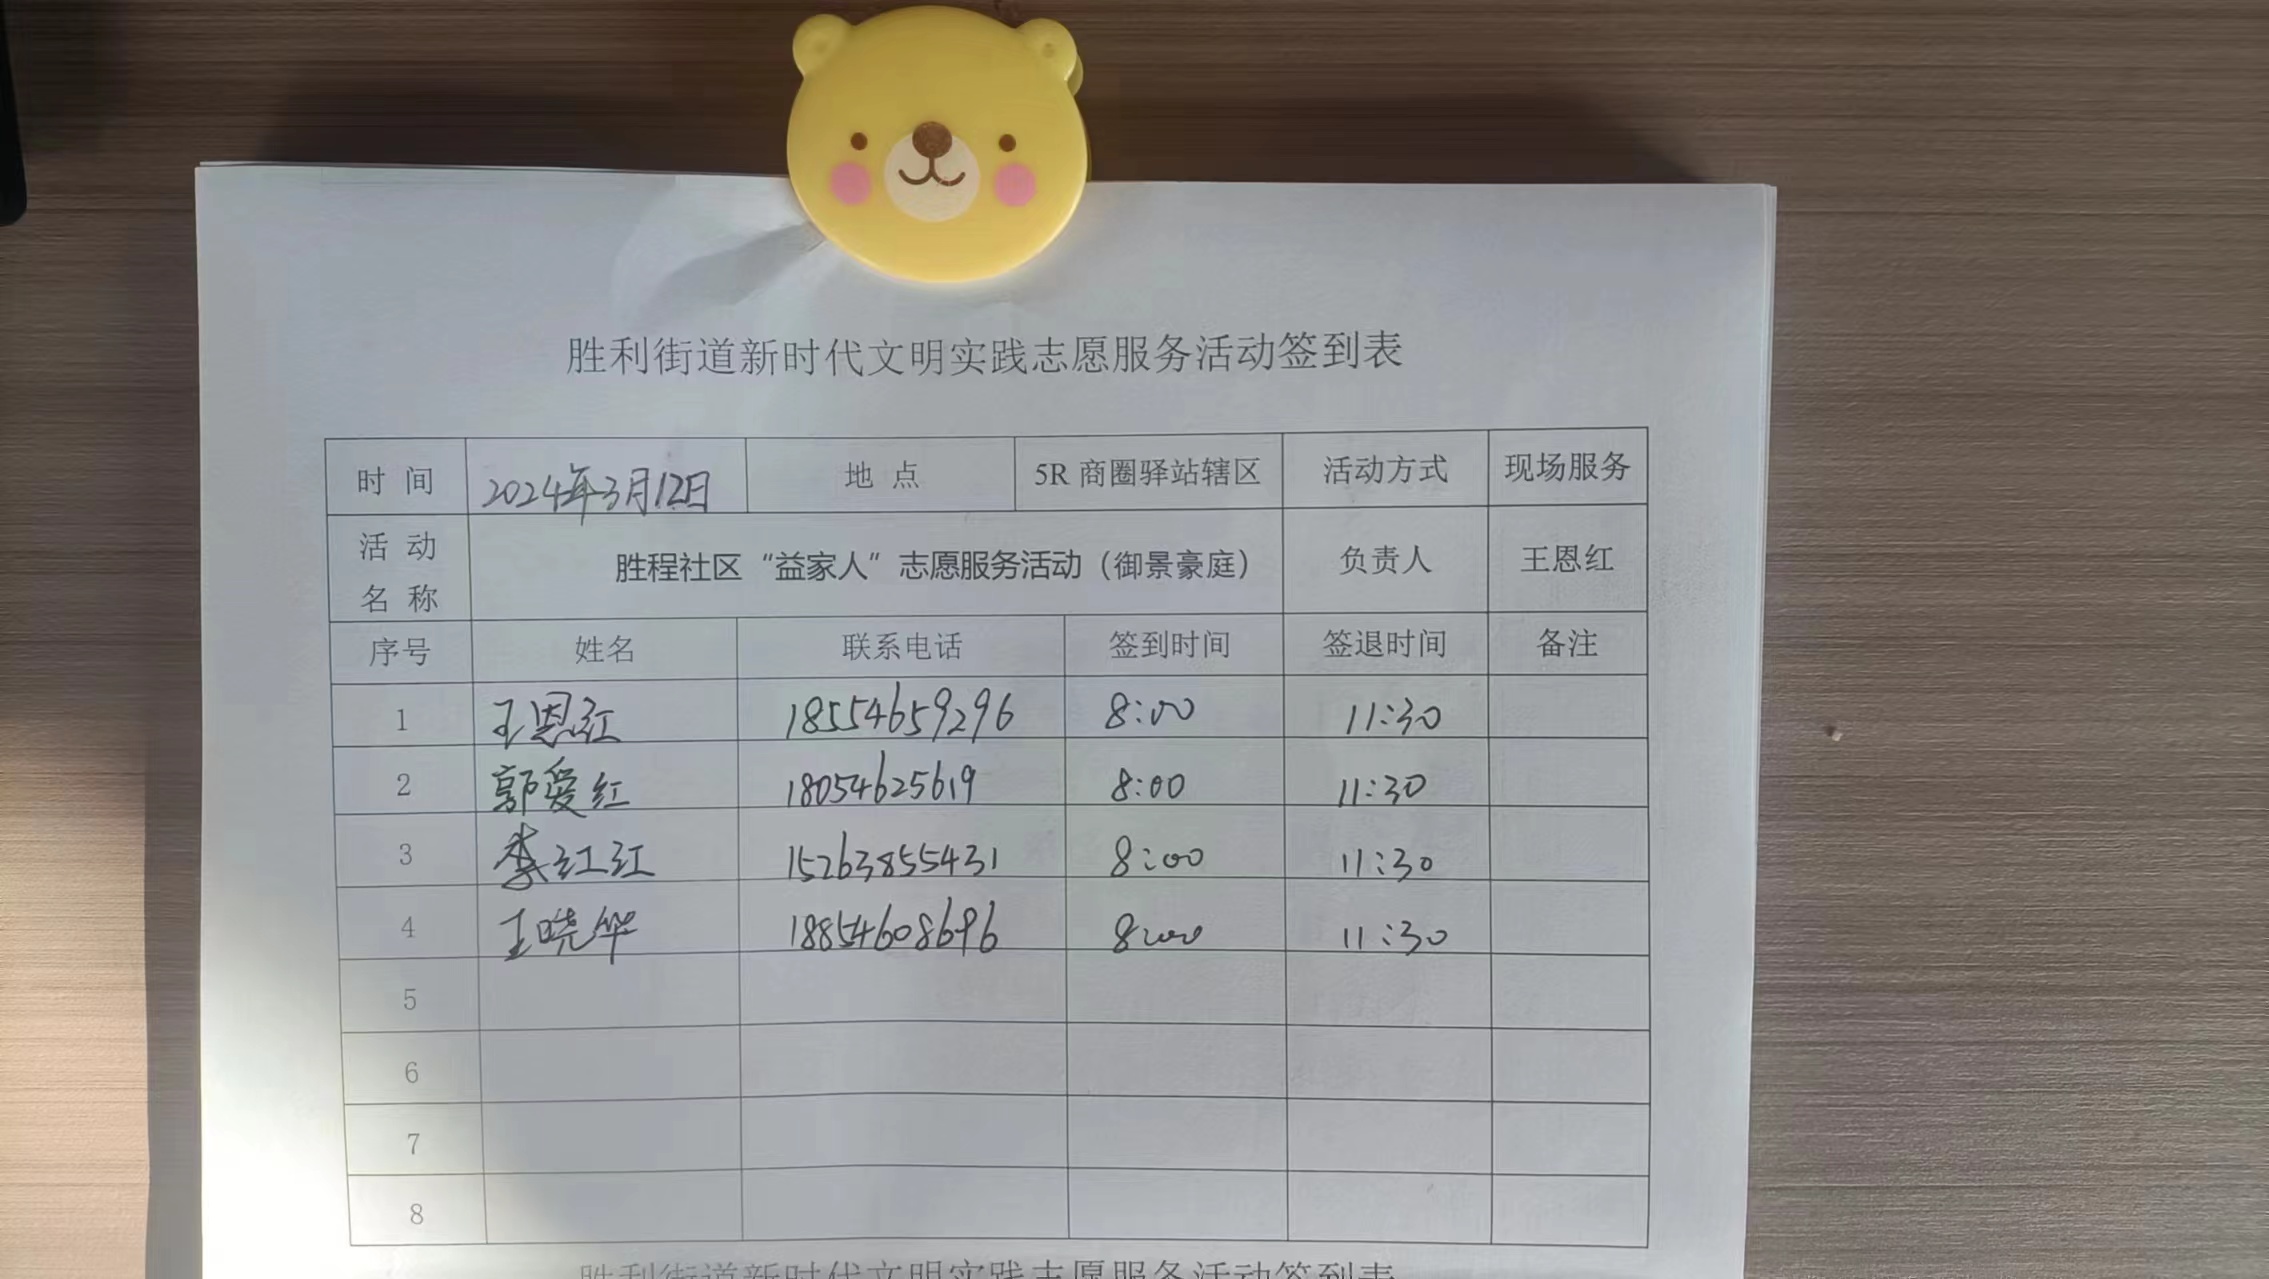 胜利街道新时代文明实践志愿服务活动签到表
时 间 2024年3月12日 地 点 5R 商圈驿站辖区 活动方式 现场服务
活 动
名 称 胜程社区“益家人”志愿服务活动（御景豪庭） 负责人 王恩红
序号 姓名 联系电话 签到时间 签退时间 备注
1 王恩红 18554659296 8:00 11:30
2 郭爱红 18054625619 8:00 11:30
3 李红红 15263855431 8:00 11:30
4 王晓华 18854608696 8:00 11:30
5
6
7
8
胜利街道新时代文明实践志愿服务活动签到表